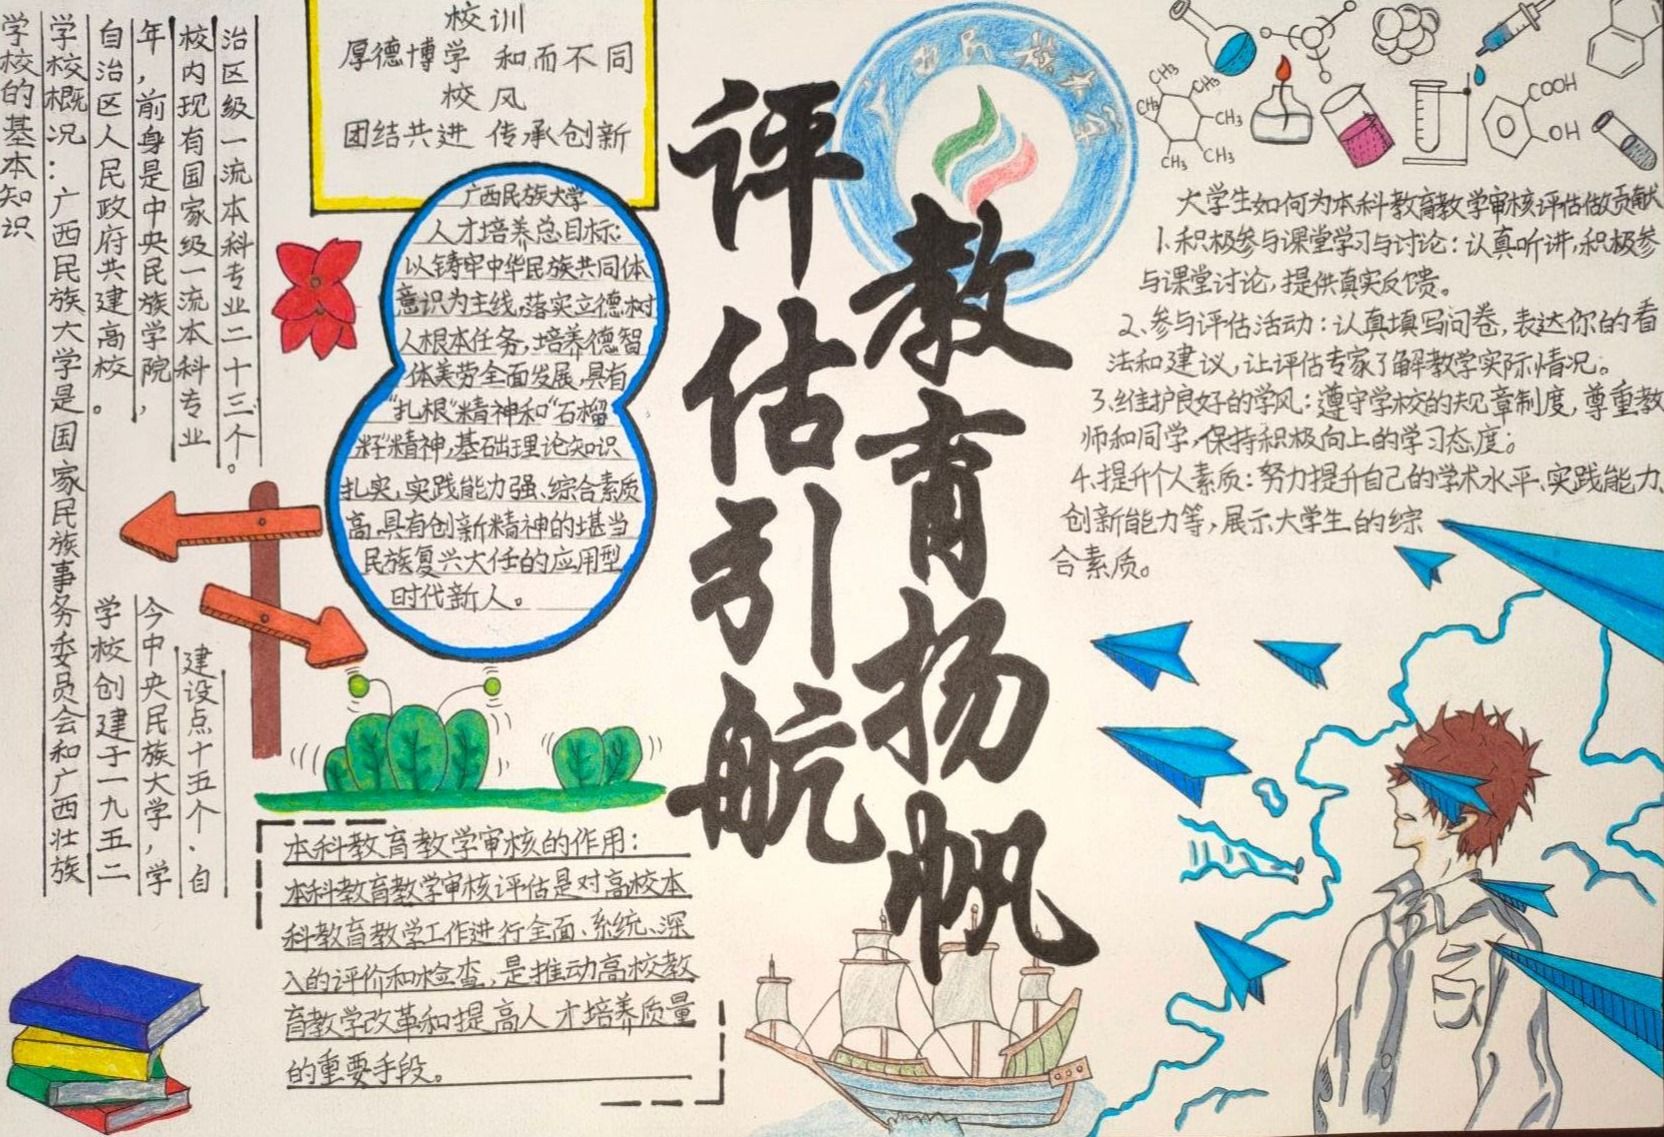 学校的基本知识
学校概况：广西民族大学是国家民族事务委员会和广西壮族
自治区人民政府共建高校。学校创建于一九五二
年，前身是中央民族学院，今中央民族大学，学
校内现有国家级一流本科专业建设点十五个，自
治区级一流本科专业二十三个。
校训
厚德博学 和而不同
校风
团结共进 传承创新
广西民族大学
人才培养总目标：
以铸牢中华民族共同体
意识为主线，落实立德树
人根本任务，培养德智
体美劳全面发展，具有
“扎根”精神和“石榴
籽”精神，基础理论知识
扎实，实践能力强、综合素质
高，具有创新精神的堪当
民族复兴大任的应用型
时代新人。
本科教育教学审核的作用：
本科教育教学审核评估是对高校本
科教育教学工作进行全面、系统、深
入的评价和检查，是推动高校教
育教学改革和提高人才培养质量
的重要手段。
评估引航
教育扬帆
广西民族大学
CH3
CH3
CH3
CH3
CH3
CH3
COOH
OH
大学生如何为本科教育教学审核评估做贡献
1、积极参与课堂学习与讨论：认真听讲，积极参
与课堂讨论，提供真实反馈。
2、参与评估活动：认真填写问卷，表达你的看
法和建议，让评估专家了解教学实际情况。
3、维护良好的学风：遵守学校的规章制度，尊重教
师和同学，保持积极向上的学习态度；
4、提升个人素质：努力提升自己的学术水平、实践能力、
创新能力等，展示大学生的综
合素质。